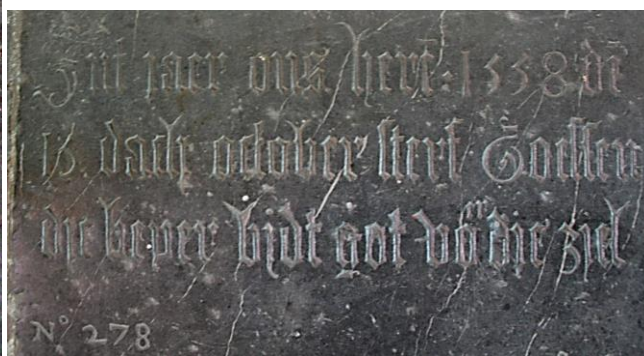 Int jaer ons herē: 1558 dē
15. dach october sterf Goessen
die bidt got vō die ziel
N° 278